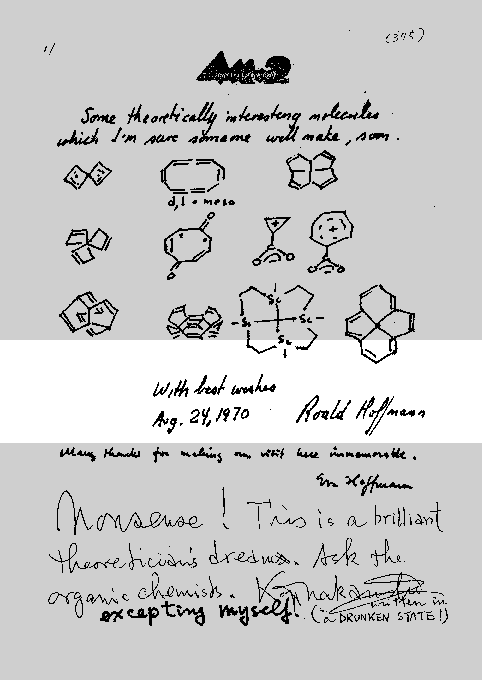 11
(375)
Some theoretically interesting molecules
which I'm sure someone will make, soon.
d,l + meso
O
O
+
Sc
Sc
With best wishes
Aug. 24, 1970 Roald Hoffmann
Many thanks for making our visit here immemorable.
Eva Hoffmann
Nonsense! This is a brilliant
theoretician's dream. Ask the
organic chemists.
excepting myself! written in
(a DRUNKEN STATE!)